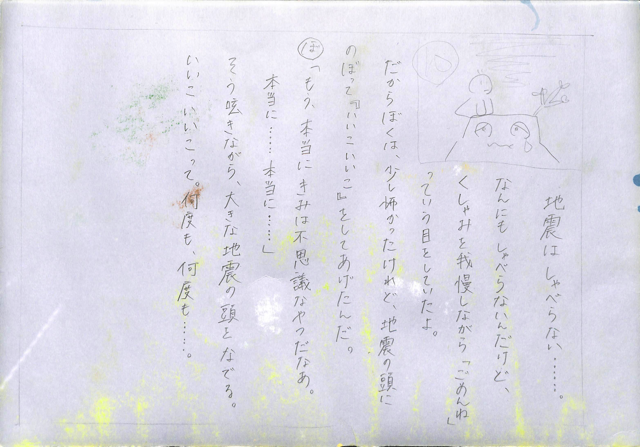 地震はしゃべらない……。
なんにもしゃべらないんだけど、
くしゃみを我慢しながら「ごめんね」
っていう目をしていたよ。
だからぼくは、少し怖かったけれど、地震の頭に
のぼって『いいこいいこ』をしてあげたんだ。
ぼ「もう、本当にきみは不思議なやつだなあ。
本当に……本当に……」
そう呟きながら、大きな地震の頭をなでる。
いいこいいこって。何度も、何度も……。